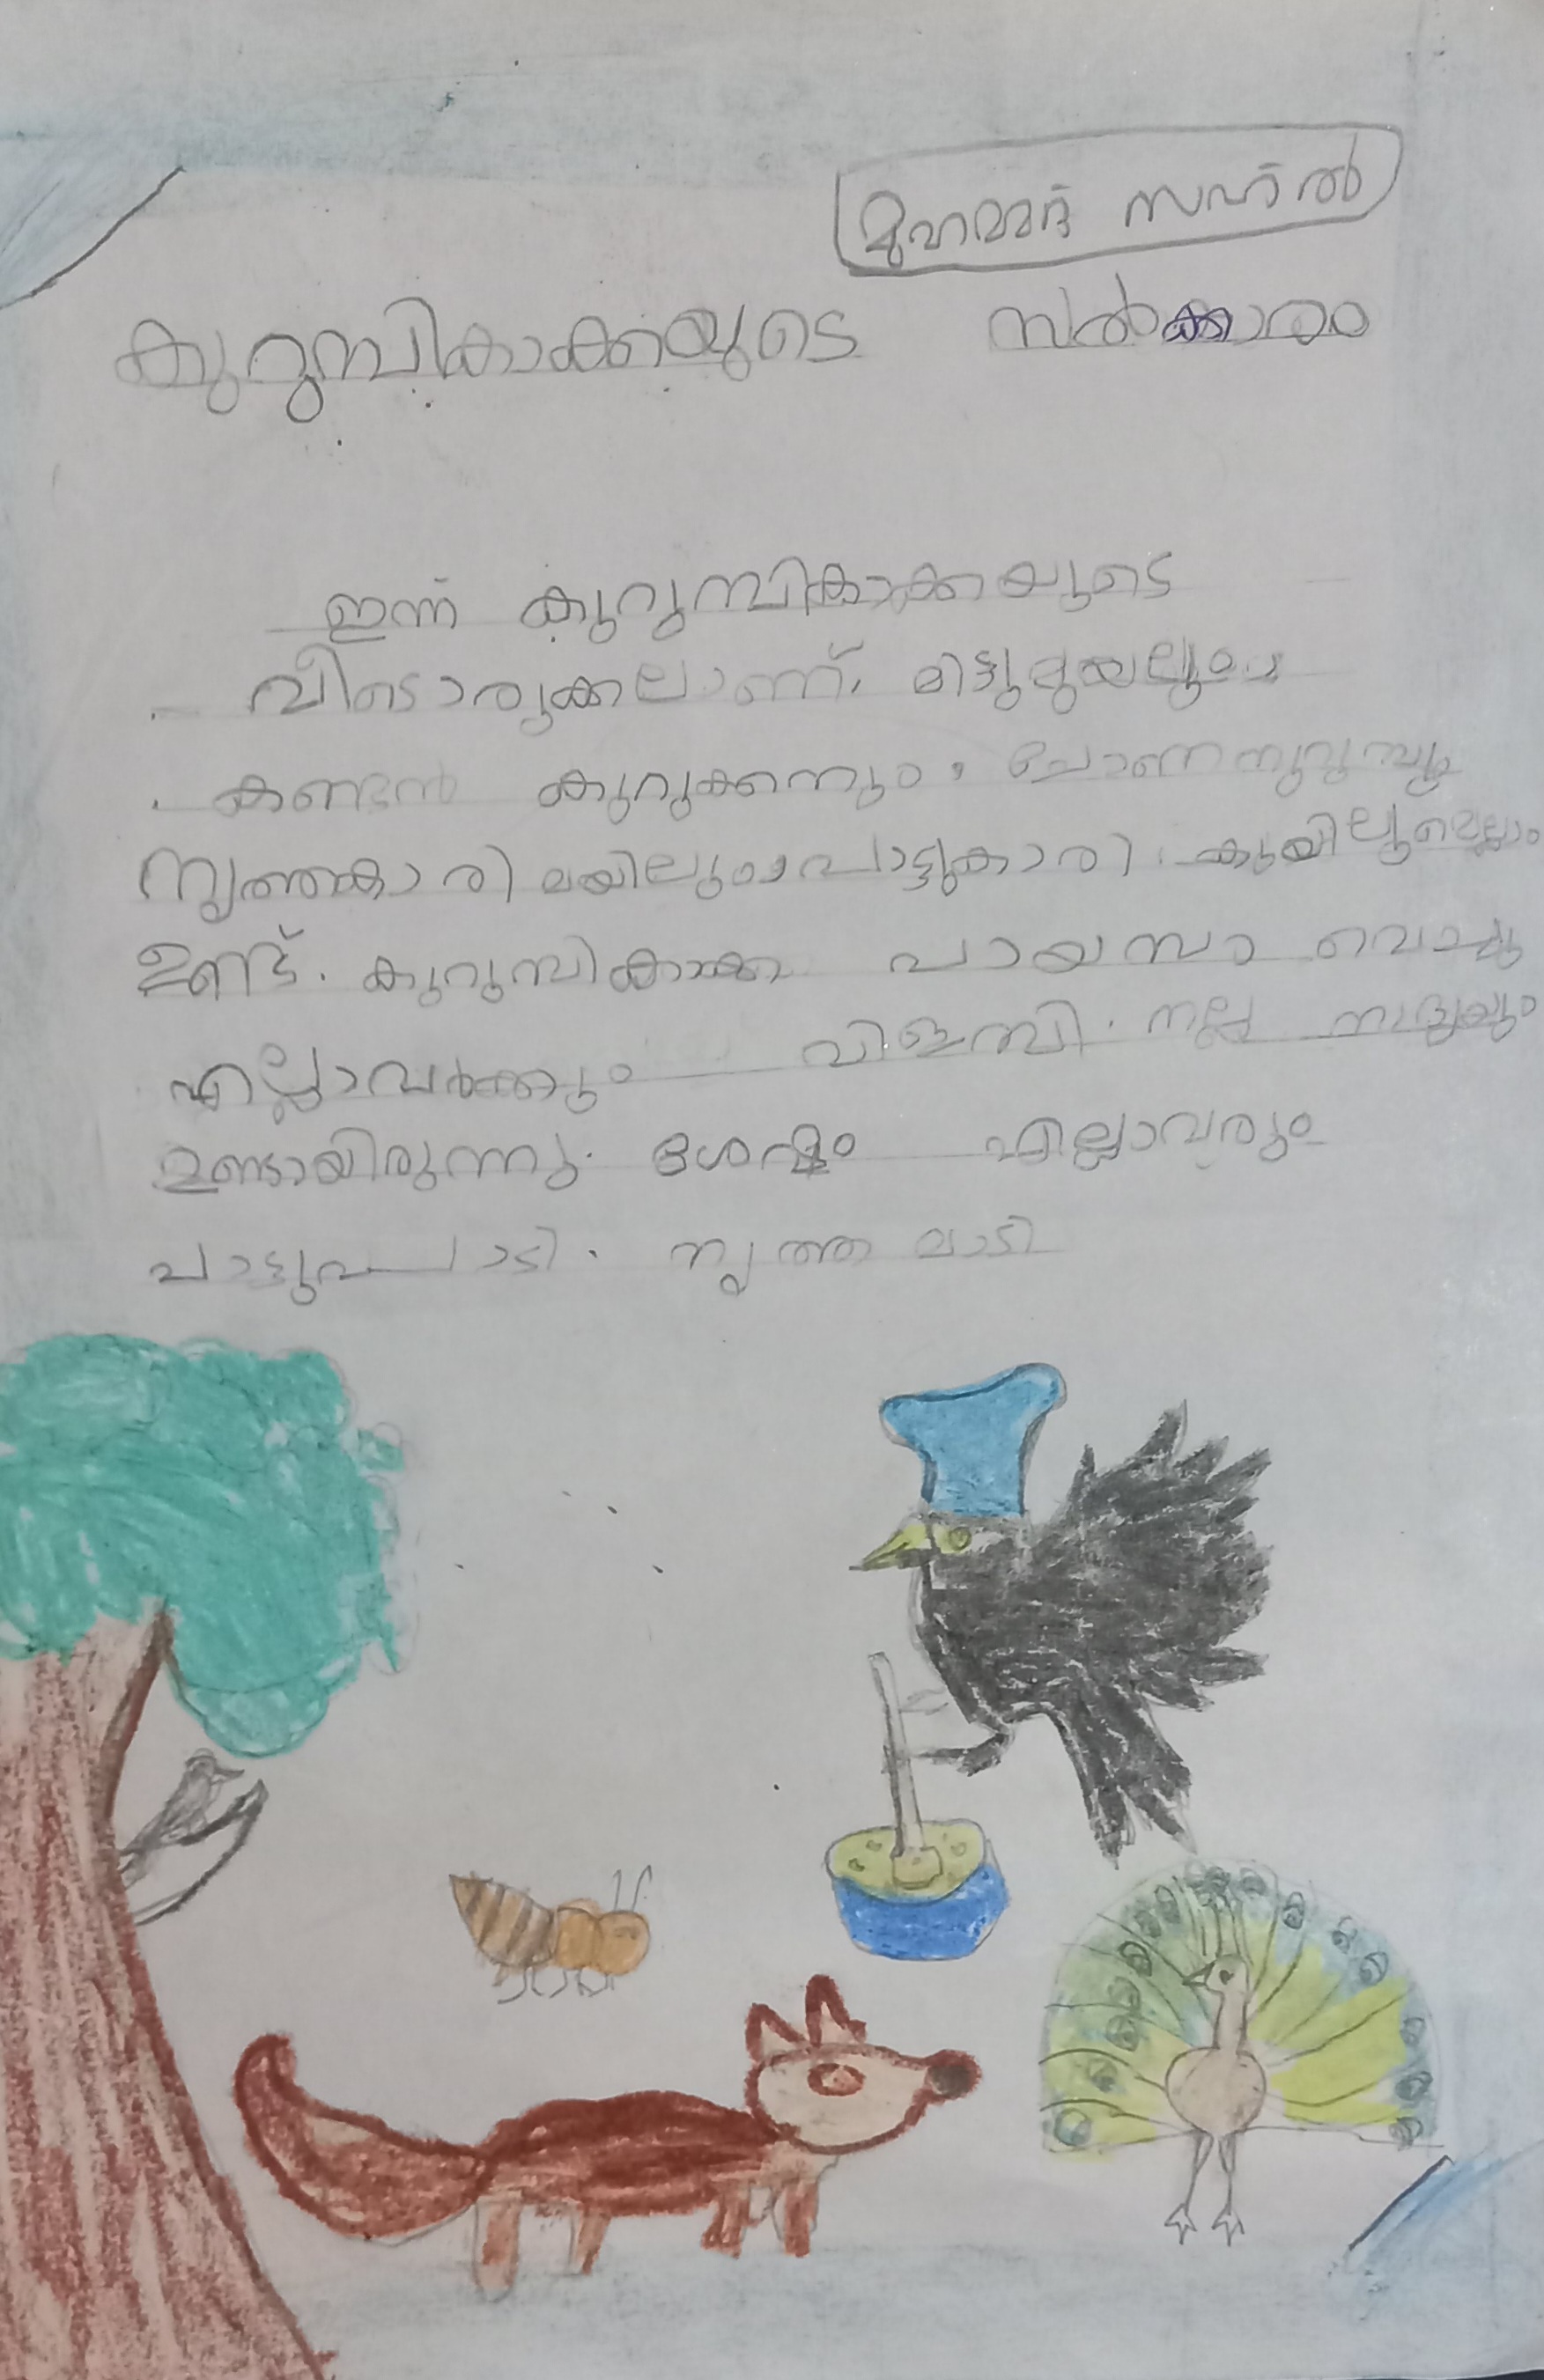 മുഹമ്മദ് സഹൽ
കുറുമ്പികാക്കയുടെ സൽക്കാരം
ഇന്ന് കുറുമ്പികാക്കയുടെ
വീടൊരുക്കലാണ്. മിട്ടുമുയലും,
കണ്ടൻ കുറുക്കനും, ചോണനുറുമ്പും
നൃത്തകാരി മയിലും, പാട്ടുകാരി കുയിലുമെല്ലാം
ഉണ്ട്. കുറുമ്പികാക്ക പായസം വെച്ചു
എല്ലാവർക്കും വിളമ്പി. നല്ല
ഉണ്ടായിരുന്നു. ശേഷം എല്ലാവരും
പാട്ടുപാടി. നൃത്തമാടി